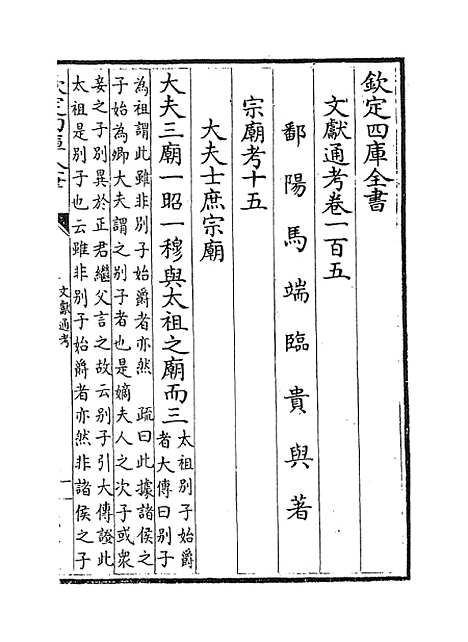 欽定四庫全書
文獻通考卷一百五
鄱陽馬端臨貴與著
宗廟考十五
大夫士庶宗廟
大夫三廟一昭一穆與太祖之廟而三
太祖别子始爵
者大傳曰别子
為祖謂此雖非别子始爵者亦然 疏曰此據諸侯之
子始為卿大夫謂之别子者也是嫡夫人之次子或衆
妾之子别異於正君繼父言之故云别子引大傳證此
太祖是别子也云雖非别子始爵者亦然非諸侯之子
文獻通考